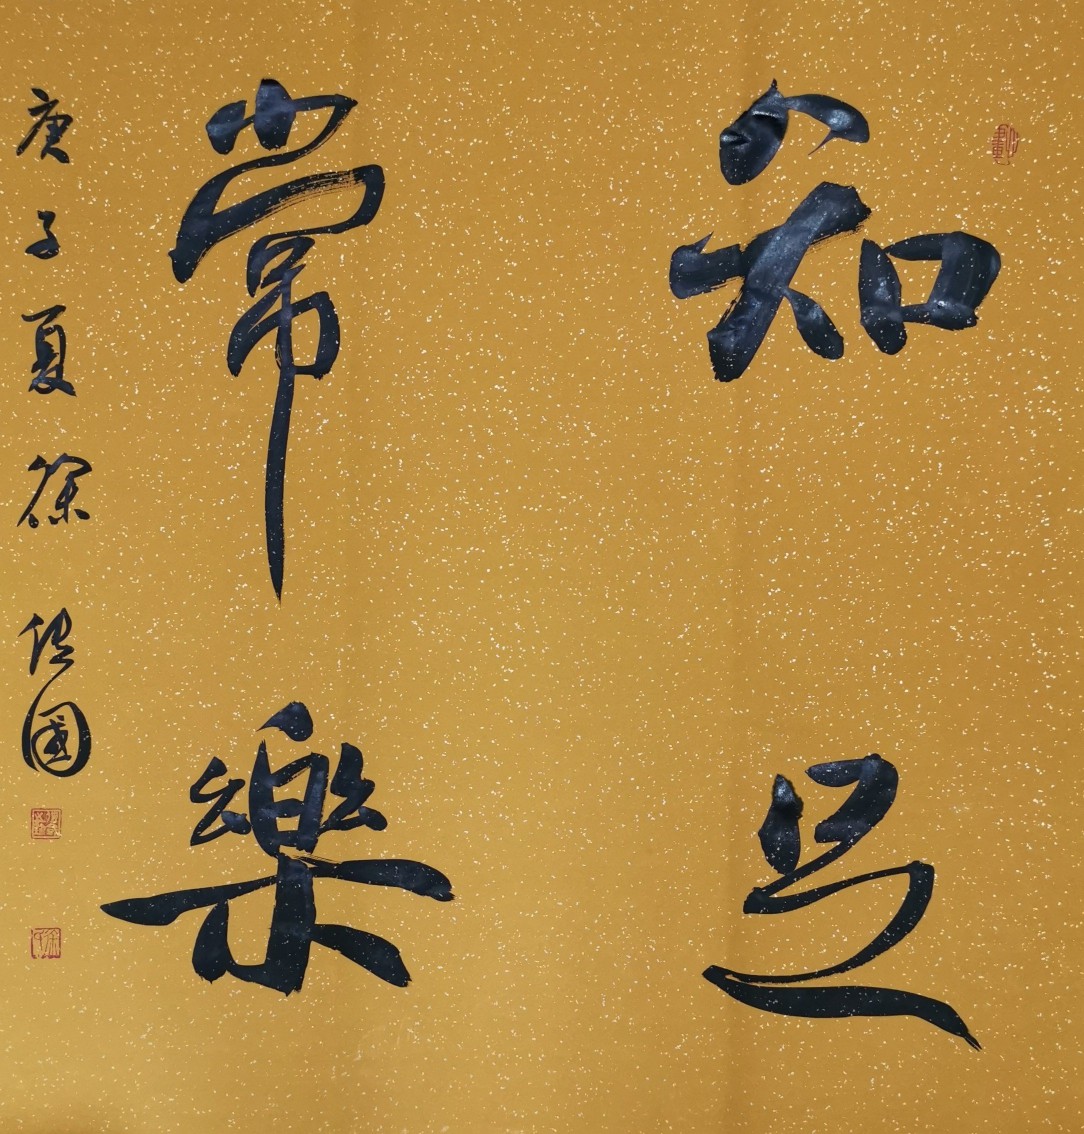 知足
常樂
庚子夏徐
國